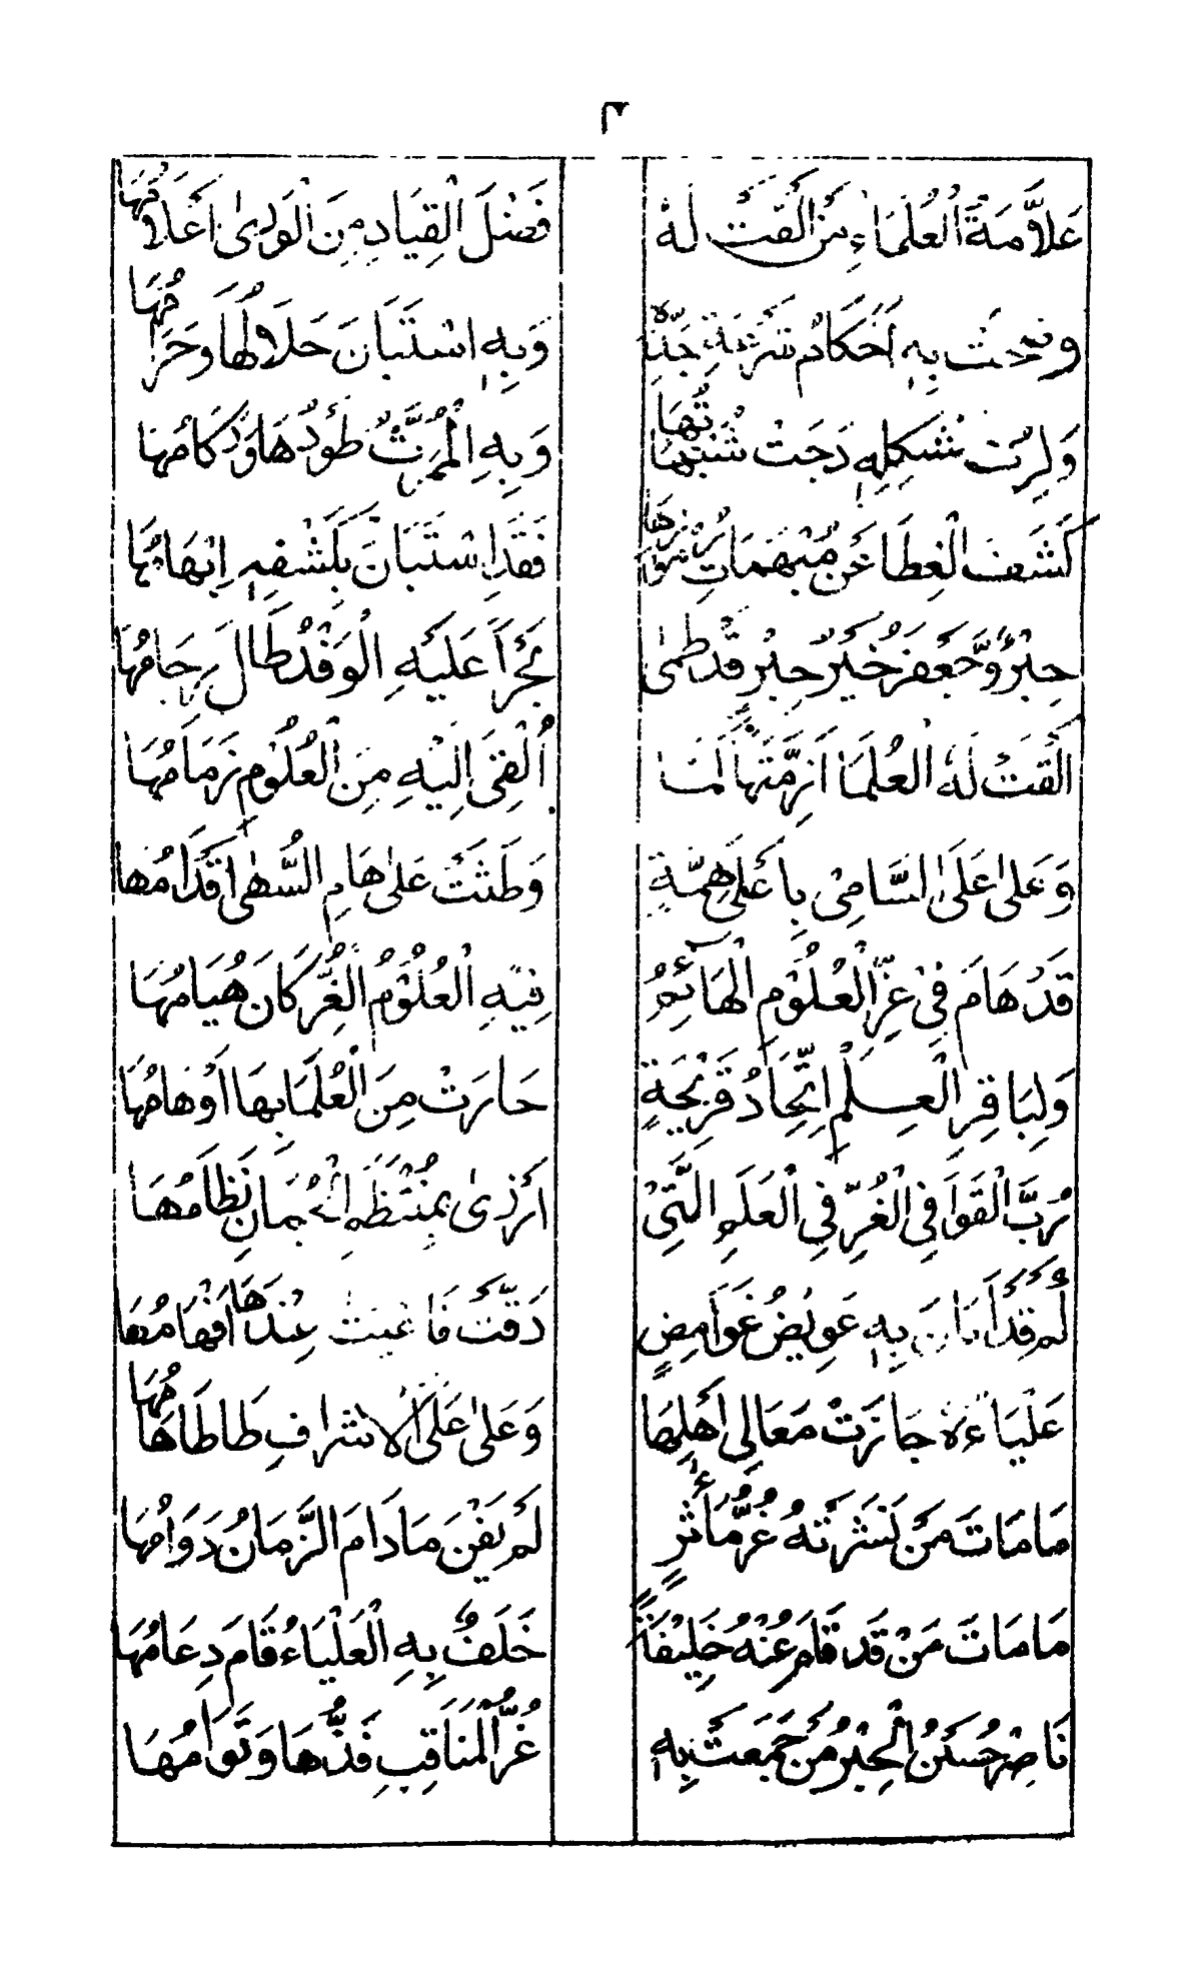 ٣
عَلَّامَةُ الْعُلَمَاءِ مَنْ أَلْقَتْ لَهُ فَضْلَ الْقِيَادِ مِنَ الْوَرٰى أَعْلَامُهَا
بِهِ أَحْكَامُ شِرْعَةِ جَدِّهِ وَبِهِ اسْتَبَانَ حَلَالُهَا وَحَرَامُهَا
مُشْكِلِهِ دَجَتْ شُبُهَاتُهَا وَبِهِ طَوْدُهَا وَرُكَامُهَا
كَشَفَ الْغِطَا عَنْ مُبْهَمَاتِ رُمُوزِهَا فَقَدِ اسْتَبَانَ بِكَشْفِهِ إِبْهَامُهَا
حِبْرٌ وَجَعْفَرُ خَيْرُ حِبْرٍ قَدْ طَمٰى بَحْرًا عَلَيْهِ الْوَفْدُ طَالَ زِحَامُهَا
أَلْقَتْ لَهُ الْعُلَمَا أَزِمَّتَهَا لِمَنْ أُلْقِىَ إِلَيْهِ مِنَ الْعُلُومِ زِمَامُهَا
وَعَلٰى عَلَى السَّامِىْ بِأَعْلٰى هِمَّةٍ وَطَئَتْ عَلٰى هَامِ السُّهٰى أَقْدَامُهَا
قَدْ هَامَ فِىْ غُرِّ الْعُلُوْمِ الْهَآئِمُ فِيْهِ الْعُلُوْمُ الْغُرُّ كَانَ هُيَامُهَا
وَلِبَاقِرِ الْعِلْمِ اتِّحَادُ قَرِيْحَةٍ حَارَتْ مِنَ الْعُلَمَا بِهَا أَوْهَامُهَا
رُبَّ الْقَوَافِى الْغُرِّ فِى الْعَلَمِ الَّتِىْ أَزْرٰى بِمُنْتَظَمِ الْجُمَانِ نِظَامُهَا
لَمْ قَدْ أَبَانَ بِهِ عَوِيْصُ غَوَامِضٍ دَقَّتْ عِنْدَهَا أَفْهَامُهَا
عَلْيَاءُهُ جَازَتْ مَعَالِىَ أَهْلِهَا وَعَلٰى عَلَى الْاَشْرَافِ طَاطَا هَامُهَا
مَا مَاتَ مَنْ نَشَرَتْهُ غُرُّ مَأٰثِرٍ لَمْ يَفْنَ مَا دَامَ الزَّمَانُ دَوَامُهَا
مَا مَاتَ مَنْ قَدْ قَامَ عَنْهُ خَلِيْفَةً خَلَفٌ بِهِ الْعَلْيَاءُ قَامَ دِعَامُهَا
نَاصِرْ حُسَيْنُ الْحِبْرُ مَنْ جَمَعَتْ بِهِ غُرُّ الْمَنَاقِبِ فَذُّهَا وَتَوَامُهَا